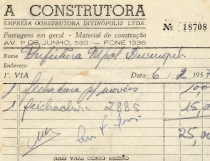 A CONSTRUTORA
EMPREZA CONSTRUTORA DIVINÓPOLIS LTDA.
Nº 18708
Ferragens em geral - Material de construção
AV. 1º DE JUNHO, 530 - FONE 1336
Nome Prefeitura Mpal Divinopolis
Endereço
1.ª VIA Data 6/2/1957
1 fechadura p/
1 fechadura 2885 15,0
25,00
NÃO VALE COMO RECIBO